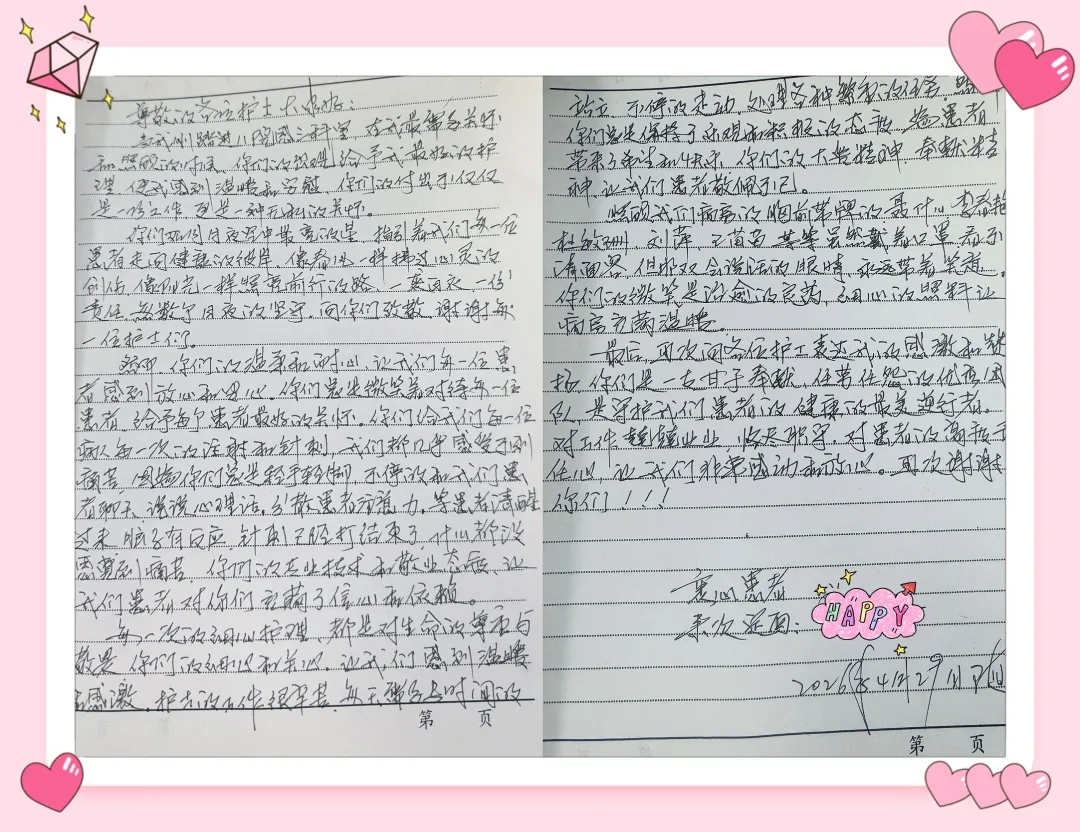 尊敬的各位护士大姐好：
当我刚踏进八院感三科室，在我最需要关怀
和照顾的时候，你们的护理给予我最好的护
理，使我感到温暖和安慰，你们的付出不仅仅
是一份工作，更是一种无私的关怀。
你们如同日夜空中最亮的星，指引着我们每一位
患者走向健康的彼岸，像春风一样拂过心灵的
创伤，像阳光一样照亮前行的路，一袭白衣，一份
责任，无数个日夜的坚守，向你们致敬，谢谢每
一位护士们。
你们的温柔和耐心，让我们每一位患
者感到放心和安心。你们总是微笑着对待每一位
患者，给予每个患者最好的关怀。你们给我们每一位
病人每一次的注射和针刺，我们都几乎感受不到
痛苦，因为你们总是轻手轻脚，不停的和我们患
者聊天，说说心理话，分散患者注意力。等患者清醒
过来，脑子有反应，针刺已经打结束了，什么都没
感觉到痛苦，你们的专业技术和敬业态度，让
我们患者对你们充满了信心和依赖。
每一次的细心护理，都是对生命的尊重与
敬畏，你们的细心和关心，让我们感到温暖
感激，护士的工作很辛苦，每天需要长时间的
第 页
站立，不停的走动，处理各种繁积的任务，
你们总是保持了乐观和积极的态度，给患者
带来了希望和快乐，你们的大无畏精神，奉献精
神，让我们患者敬佩不已。
照顾我们病房的胸前带牌的聂什么，李春艳
杜敏娜，刘萍，王苗苗等等虽然戴着口罩看不
清面容，但那双会说话的眼睛，永远带着笑意，
你们的微笑是治愈的良药，细心的照料让
病房充满温暖。
最后，再次向各位护士表达我的感激和赞
扬，你们是一支甘于奉献，任劳任怨的优秀团
队，是守护我们患者的健康的最美逆行者。
对工作兢兢业业，恪尽职守，对患者的高度责
任心，让我们非常感动和放心。再次谢谢
你们！！！
衷心患者
亲次冠面：
HAPPY
2026年4月29日
第 页